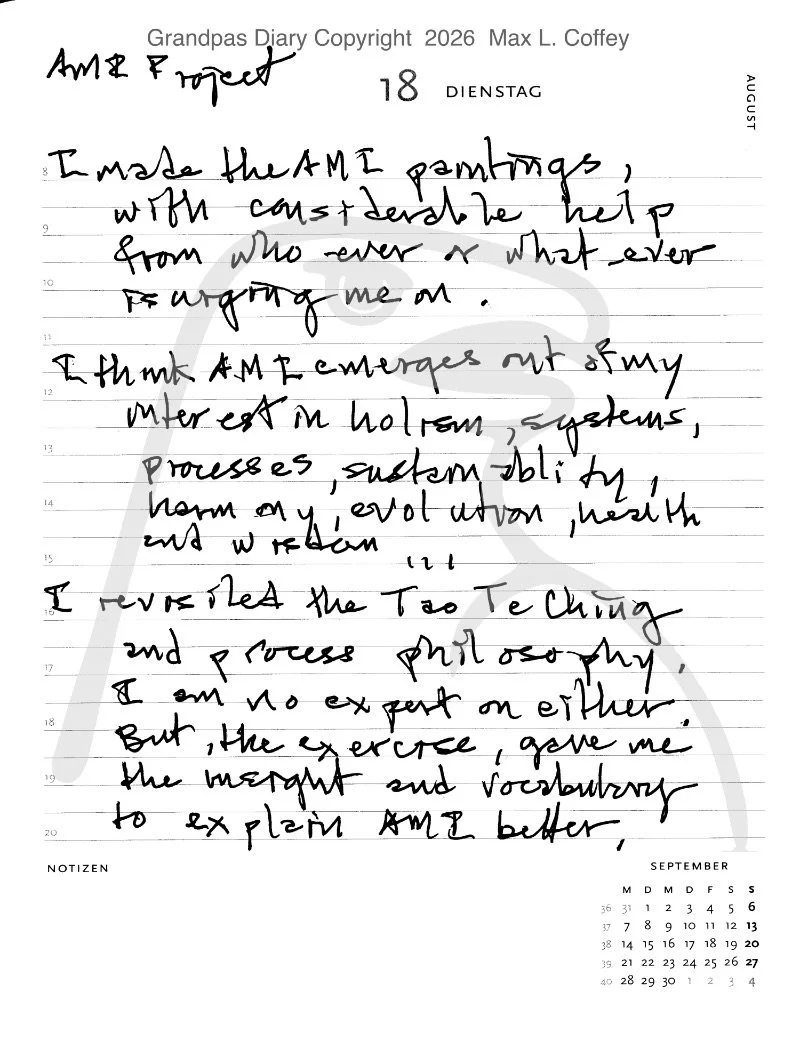 Grandpas Diary Copyright 2026 Max L. Coffey
AMI Project
18 DIENSTAG
AUGUST
8 I made the AMI paintings,
with considerable help
9
from who-ever or what-ever
10
is urging me on.
11
I think AMI emerges out of my
12
interest in holism, systems,
13
processes, sustainability,
14 harmony, evolution, health
and wisdom
15
I revisited the Tao Te Ching
16
and process philosophy.
17
I am no expert on either.
18
But, the exercise, gave me
19 the insight and vocabulary
20 to explain AMI better,
NOTIZEN
SEPTEMBER
M D M D F S S
36 31 1 2 3 4 5 6
37 7 8 9 10 11 12 13
38 14 15 16 17 18 19 20
39 21 22 23 24 25 26 27
40 28 29 30 1 2 3 4